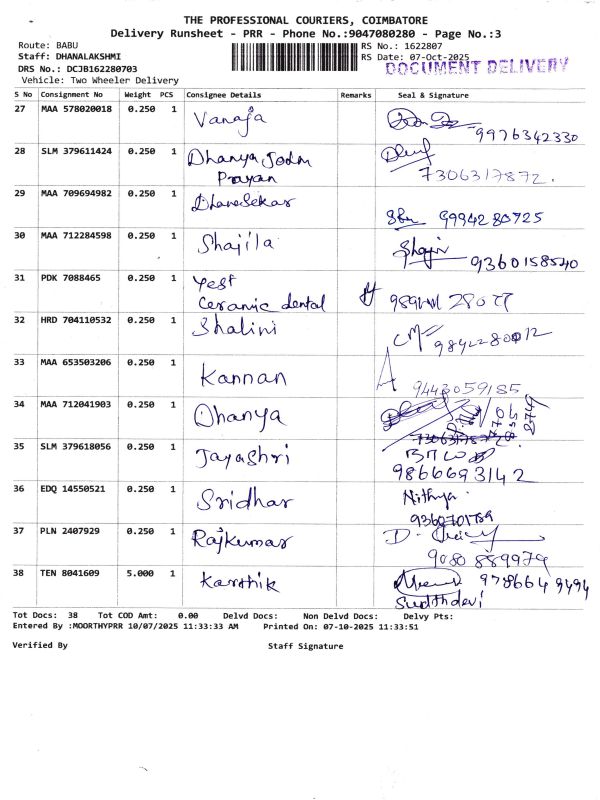 THE PROFESSIONAL COURIERS, COIMBATORE
Delivery Runsheet - PRR - Phone No.:9047080280 - Page No.:3
Route: BABU
Staff: DHANALAKSHMI
DRS No.: DCJB162280703
Vehicle: Two Wheeler Delivery
RS No.: 1622807
RS Date: 07-Oct-2025
DOCUMENT DELIVERY
S No Consignment No Weight PCS Consignee Details Remarks Seal & Signature
27 MAA 578020018 0.250 1 Vanaja 9976342330
28 SLM 379611424 0.250 1 Dhanya Jodm
Prayan 7306317872.
29 MAA 709694982 0.250 1 Dhanasekar 9994280725
30 MAA 712284598 0.250 1 Shajila 9360158540
31 PDK 7088465 0.250 1 Yest
Ceramic dental
32 HRD 704110532 0.250 1 Shalini
33 MAA 653503206 0.250 1 Kannan 9443059185
34 MAA 712041903 0.250 1 Dhanya
35 SLM 379618056 0.250 1 Jayashri
9866693142
36 EDQ 14550521 0.250 1 Sridhar Nithya
37 PLN 2407929 0.250 1 Rajkumar
9080889979
38 TEN 8041609 5.000 1 Karthik 9786649494
Tot Docs: 38 Tot COD Amt: 0.00 Delvd Docs: Non Delvd Docs: Delvy Pts:
Entered By :MOORTHYPRR 10/07/2025 11:33:33 AM Printed On: 07-10-2025 11:33:51
Verified By Staff Signature